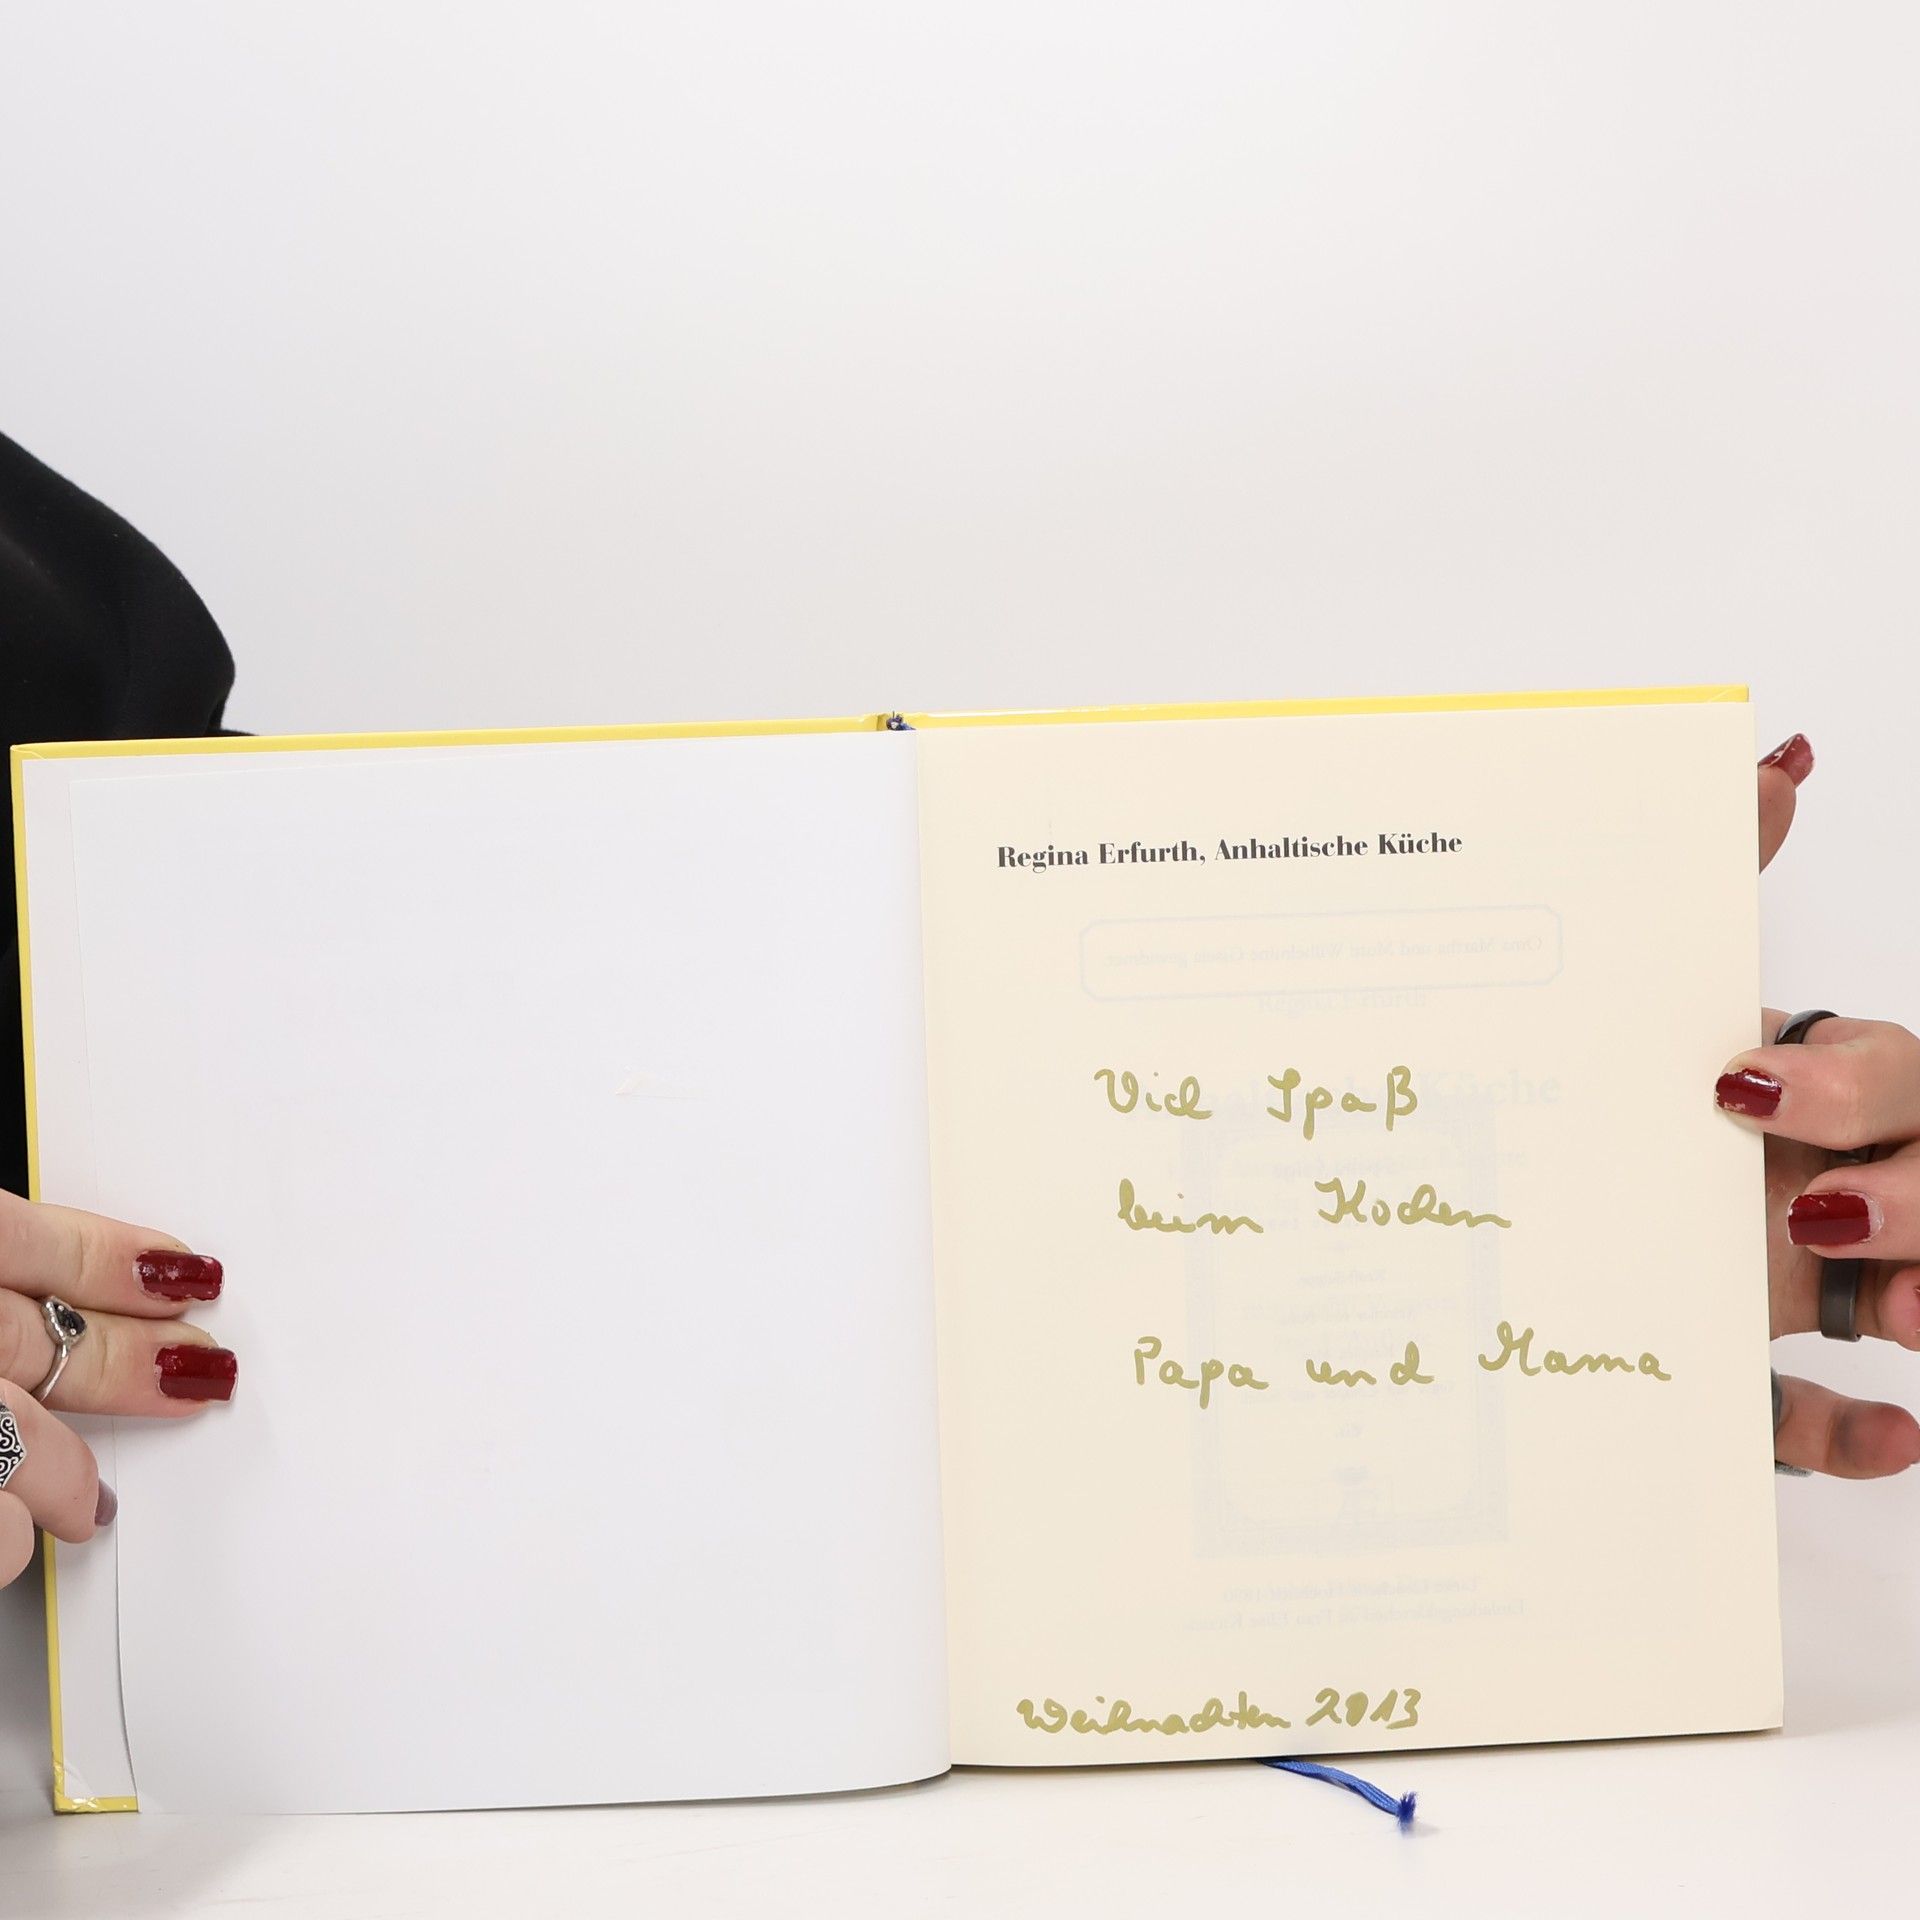 Regina Erfurth, Anhaltische Küche
Viel Spaß
beim Kochen
Papa und Mama
Weihnachten 2013